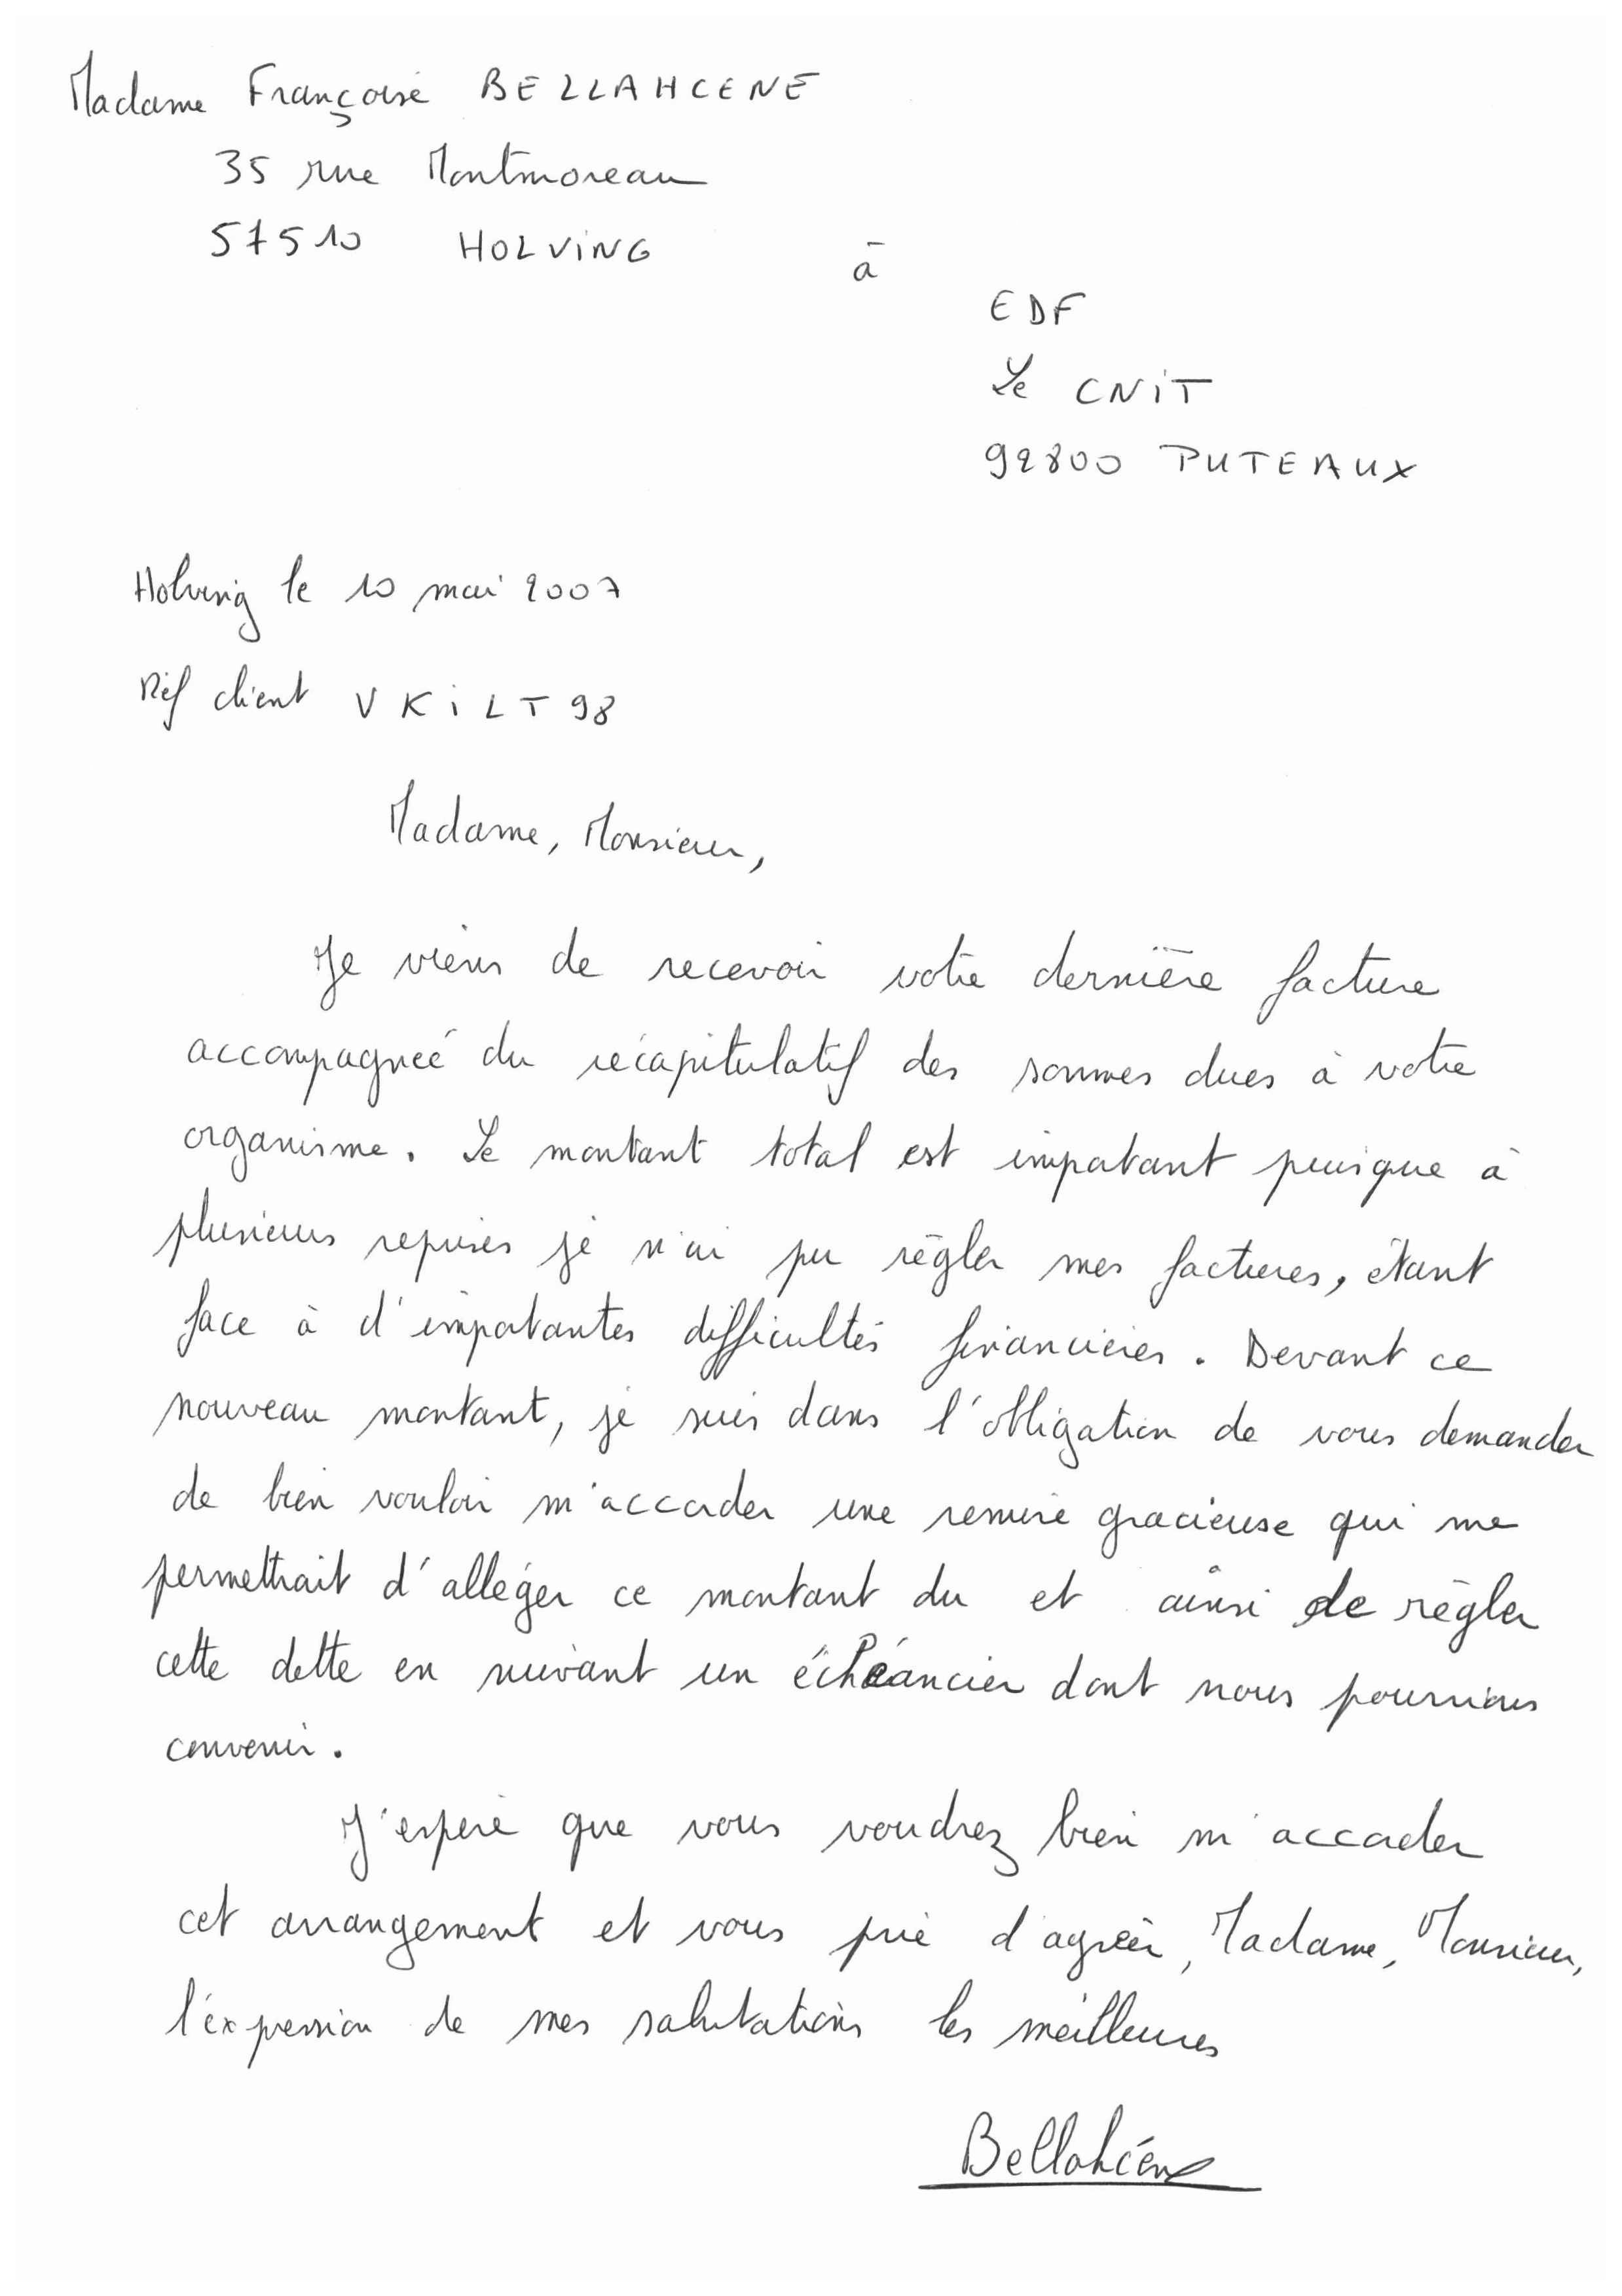 Madame Françoise BELLAHCENE
35 rue Montmoreau
57510 HOLVING
à
EDF
Le CNIT
92800 PUTEAUX
Holving le 10 mai 2007
Réf client VKiLT98
Madame, Monsieur,
Je viens de recevoir votre dernière facture
accompagnée du récapitulatif des sommes dues à votre
organisme. Le montant total est important puisque à
plusieurs reprises je n'ai pu régler mes factures, étant
face à d'importantes difficultés financières. Devant ce
nouveau montant, je suis dans l'obligation de vous demander
de bien vouloir m'accorder une remise gracieuse qui me
permettrait d'alléger ce montant du et ainsi de régler
cette dette en suivant un échéancier dont nous pourrions
convenir.
J'espère que vous voudrez bien m'accorder
cet arrangement et vous prie d'agréer, Madame, Monsieur,
l'expression de mes salutations les meilleures
Bellahcène